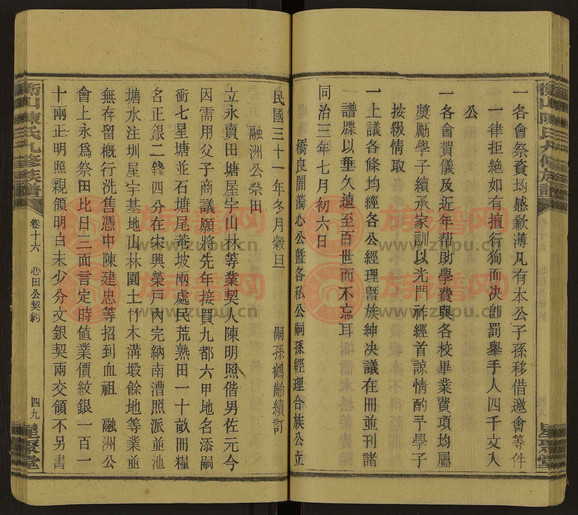 衡山陳氏九修族譜
一各會祭費均感歉薄凡有本公子孫移借邀會等件
一律拒絕如有擅行狥面決卽罰舉手人四千文入
公
一各會賀儀及近年幫助學費與各校畢業賣項均屬
獎勵學子續承家訓以光門祚經首諒情酌予學子
按級情取
以上議各條均經各公經理曁族紳決議在冊並刊諸
譜牒以垂久遠至百世而不忘耳
梅良閣蒲心公曁各私公嗣孫經理合族公立
同治三年七月初六日
民國三十一年冬月穀旦
嗣孫鶴齡續訂
融洲公祭田
立永賣田塘屋宇山林等業契人陳明照偕男佐元今
因需用父子商議願將先年接買九都六甲地名添嗣
衝七星塘並石塘尾菴坡兩處民荒熟田一十畝冊糧
名正銀二錢四分在宋興榮戶內完納南漕照派並池
塘水注圳屋宇基地山林園土竹木溝塅餘地等業並
無存留槪行洗售憑中陳建忠等招到血祖 融洲公
會上永爲祭田比日三面言定時值業價紋銀一百一
十兩正明照親領明白未少分文銀契兩交領不另書
衡山陳氏九修族譜
卷十六 心田公契約
四九
星聚堂
族譜网
www.zupu.cn